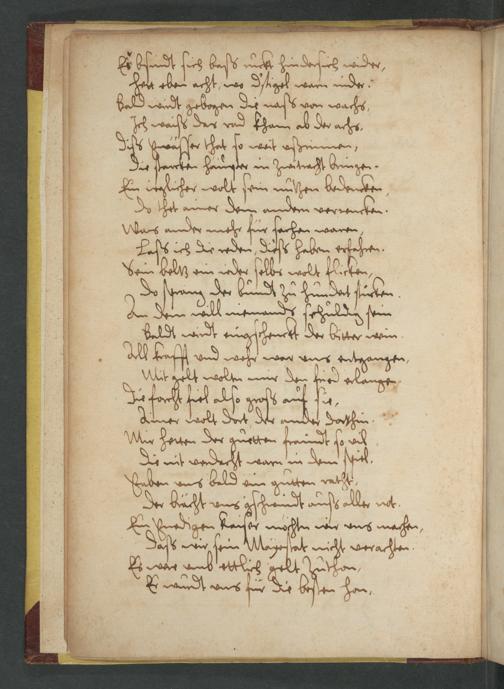 Es bsindt sich bass nickt hindersich wider,
Hett eben acht, wo d'stigel warn nider.
Bald windt gebogen die nass von wachs,
Ich waiss das rad kham ab der achs,
Diss gwässer that so weit
Die starcken häupter in zwitracht bringen.
Ein ieglicher wolt sein nutzen bedencken,
Do thet ainer dem andern verrencken.
Was ander mehr für sachen waren,
Lass ich die reden, diess haben erfahren.
Sein beltz ein ieder selbs wolt flicken,
Do sprang der bundt zu hundert stucken.
An dem will niemands schuldig sein
Baldt windt eingschenckt der bitter wein.
All krafft und wehr war uns entgangen,
Mit gelt wolten mir den frid erlangen
Die forcht fiel also gross auf sie,
Ainer wolt dort der ander dorthin.
Wir hetten der guetten fraindt so vil
die nit verdacht warn in dem spil.
Gaben uns bald ein gutten rath.
Der brächt uns gschwindt auss aller not.
Ein gnedigen kaiser möchten wir uns machen,
Dass wir sein Mayestat nicht verachten.
Es wäre umb ettlich gelt zuthon,
Er wurdt uns für die besten hon,